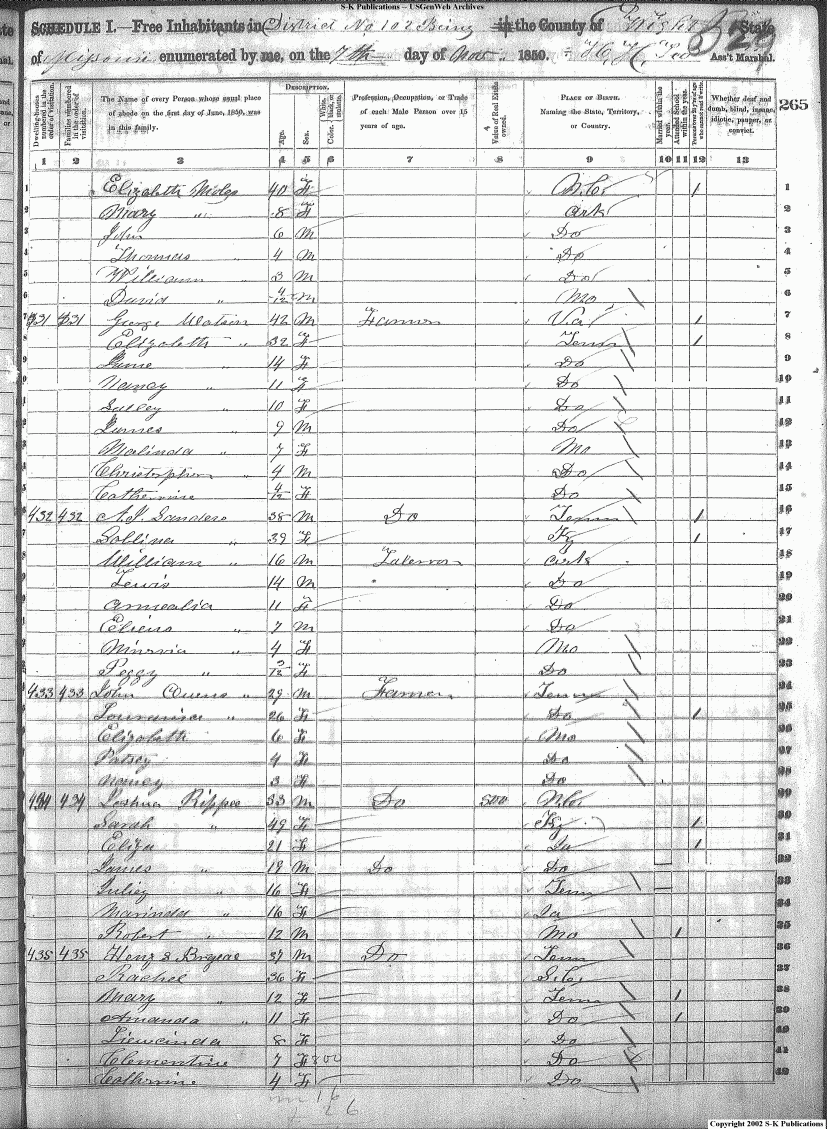 S-K Publications – USGenWeb Archives
SCHEDULE I.—Free Inhabitants in District No 102 Being in the County of Wright State
of Missouri enumerated by me, on the 7th day of Nov. 1850. Ass't Marshal.
265
Dwelling-houses numbered in the order of visitation.
Families numbered in the order of visitation.
The Name of every Person whose usual place of abode on the first day of June, 1850, was in this family.
DESCRIPTION.
Age.
Sex.
Color. White, black, or mulatto.
Profession, Occupation, or Trade of each Male Person over 15 years of age.
Value of Real Estate owned.
PLACE OF BIRTH. Naming the State, Territory, or Country.
Married within the year.
Attended School within the year.
Persons over 20 y'rs of age who cannot read & write.
Whether deaf and dumb, blind, insane, idiotic, pauper, or convict.
1 2 3 4 5 6 7 8 9 10 11 12 13
1 Elizabeth 40 F N.C. 1 1
2 Mary " 8 F Ark 2
3 John 6 M Do 3
4 Thomas " 4 M Do 4
5 William " 3 M Do 5
6 David " 4/12 M Mo 6
7 431 431 George Watson 42 M Farmer Va 1 7
8 Elizabeth " 32 F Tenn 1 8
9 Jane " 14 F Do 9
10 Nancy " 11 F Do 10
Salley " 10 F Do 11
James " 9 M Do 12
Malinda " 7 F Mo 13
Christopher " 4 M Do 14
Catherine 4/12 F Do 15
432 432 A.J. Sanders 38 M Do Tenn 1 16
" 39 F Ky 1 17
William " 16 M Ark 18
Lewis 14 M Do 19
11 F Do 20
" 7 M Do 21
Minervia " 4 F Mo 22
Peggy " F Do 23
433 433 John Owens " 29 M Farmer Tenn 24
" 26 F Do 1 25
Elizabeth 6 F Mo 26
Patsey 4 F Do 27
Nancy 3 F Do 28
434 434 Joshua Rippee 53 M Do 500 N.C. 29
Sarah " 49 F Ky 1 30
Eliza 21 F Ia 1 31
James " 19 M Do Do 32
" 16 F Tenn 33
Marinda " 16 F Ia 34
Robert " 12 M Mo 1 35
435 435 37 M Do Tenn 36
Rachel 36 F S.C. 37
Mary " 12 F Tenn 1 38
Amanda " 11 F Do 1 39
8 F Do 40
Clementine 7 F 800 Do 41
Catherine 4 F Do 42
16
26
Copyright 2002 S-K Publications